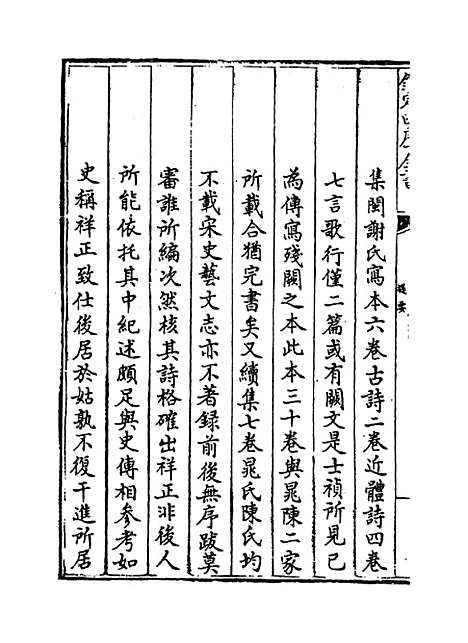 欽定四庫全書
提要
集閩謝氏寫本六卷古詩二卷近體詩四卷
七言歌行僅二篇或有闕文是士禎所見已
為傳寫殘闕之本此本三十卷與晁陳二家
所載合猶完書矣又續集七卷晁氏陳氏均
不載宋史藝文志亦不著録前後無序跋莫
審誰所編次然核其詩格確出祥正非後人
所能依托其中紀述頗足與史傳相參考如
史稱祥正致仕後居於姑孰不復干進所居